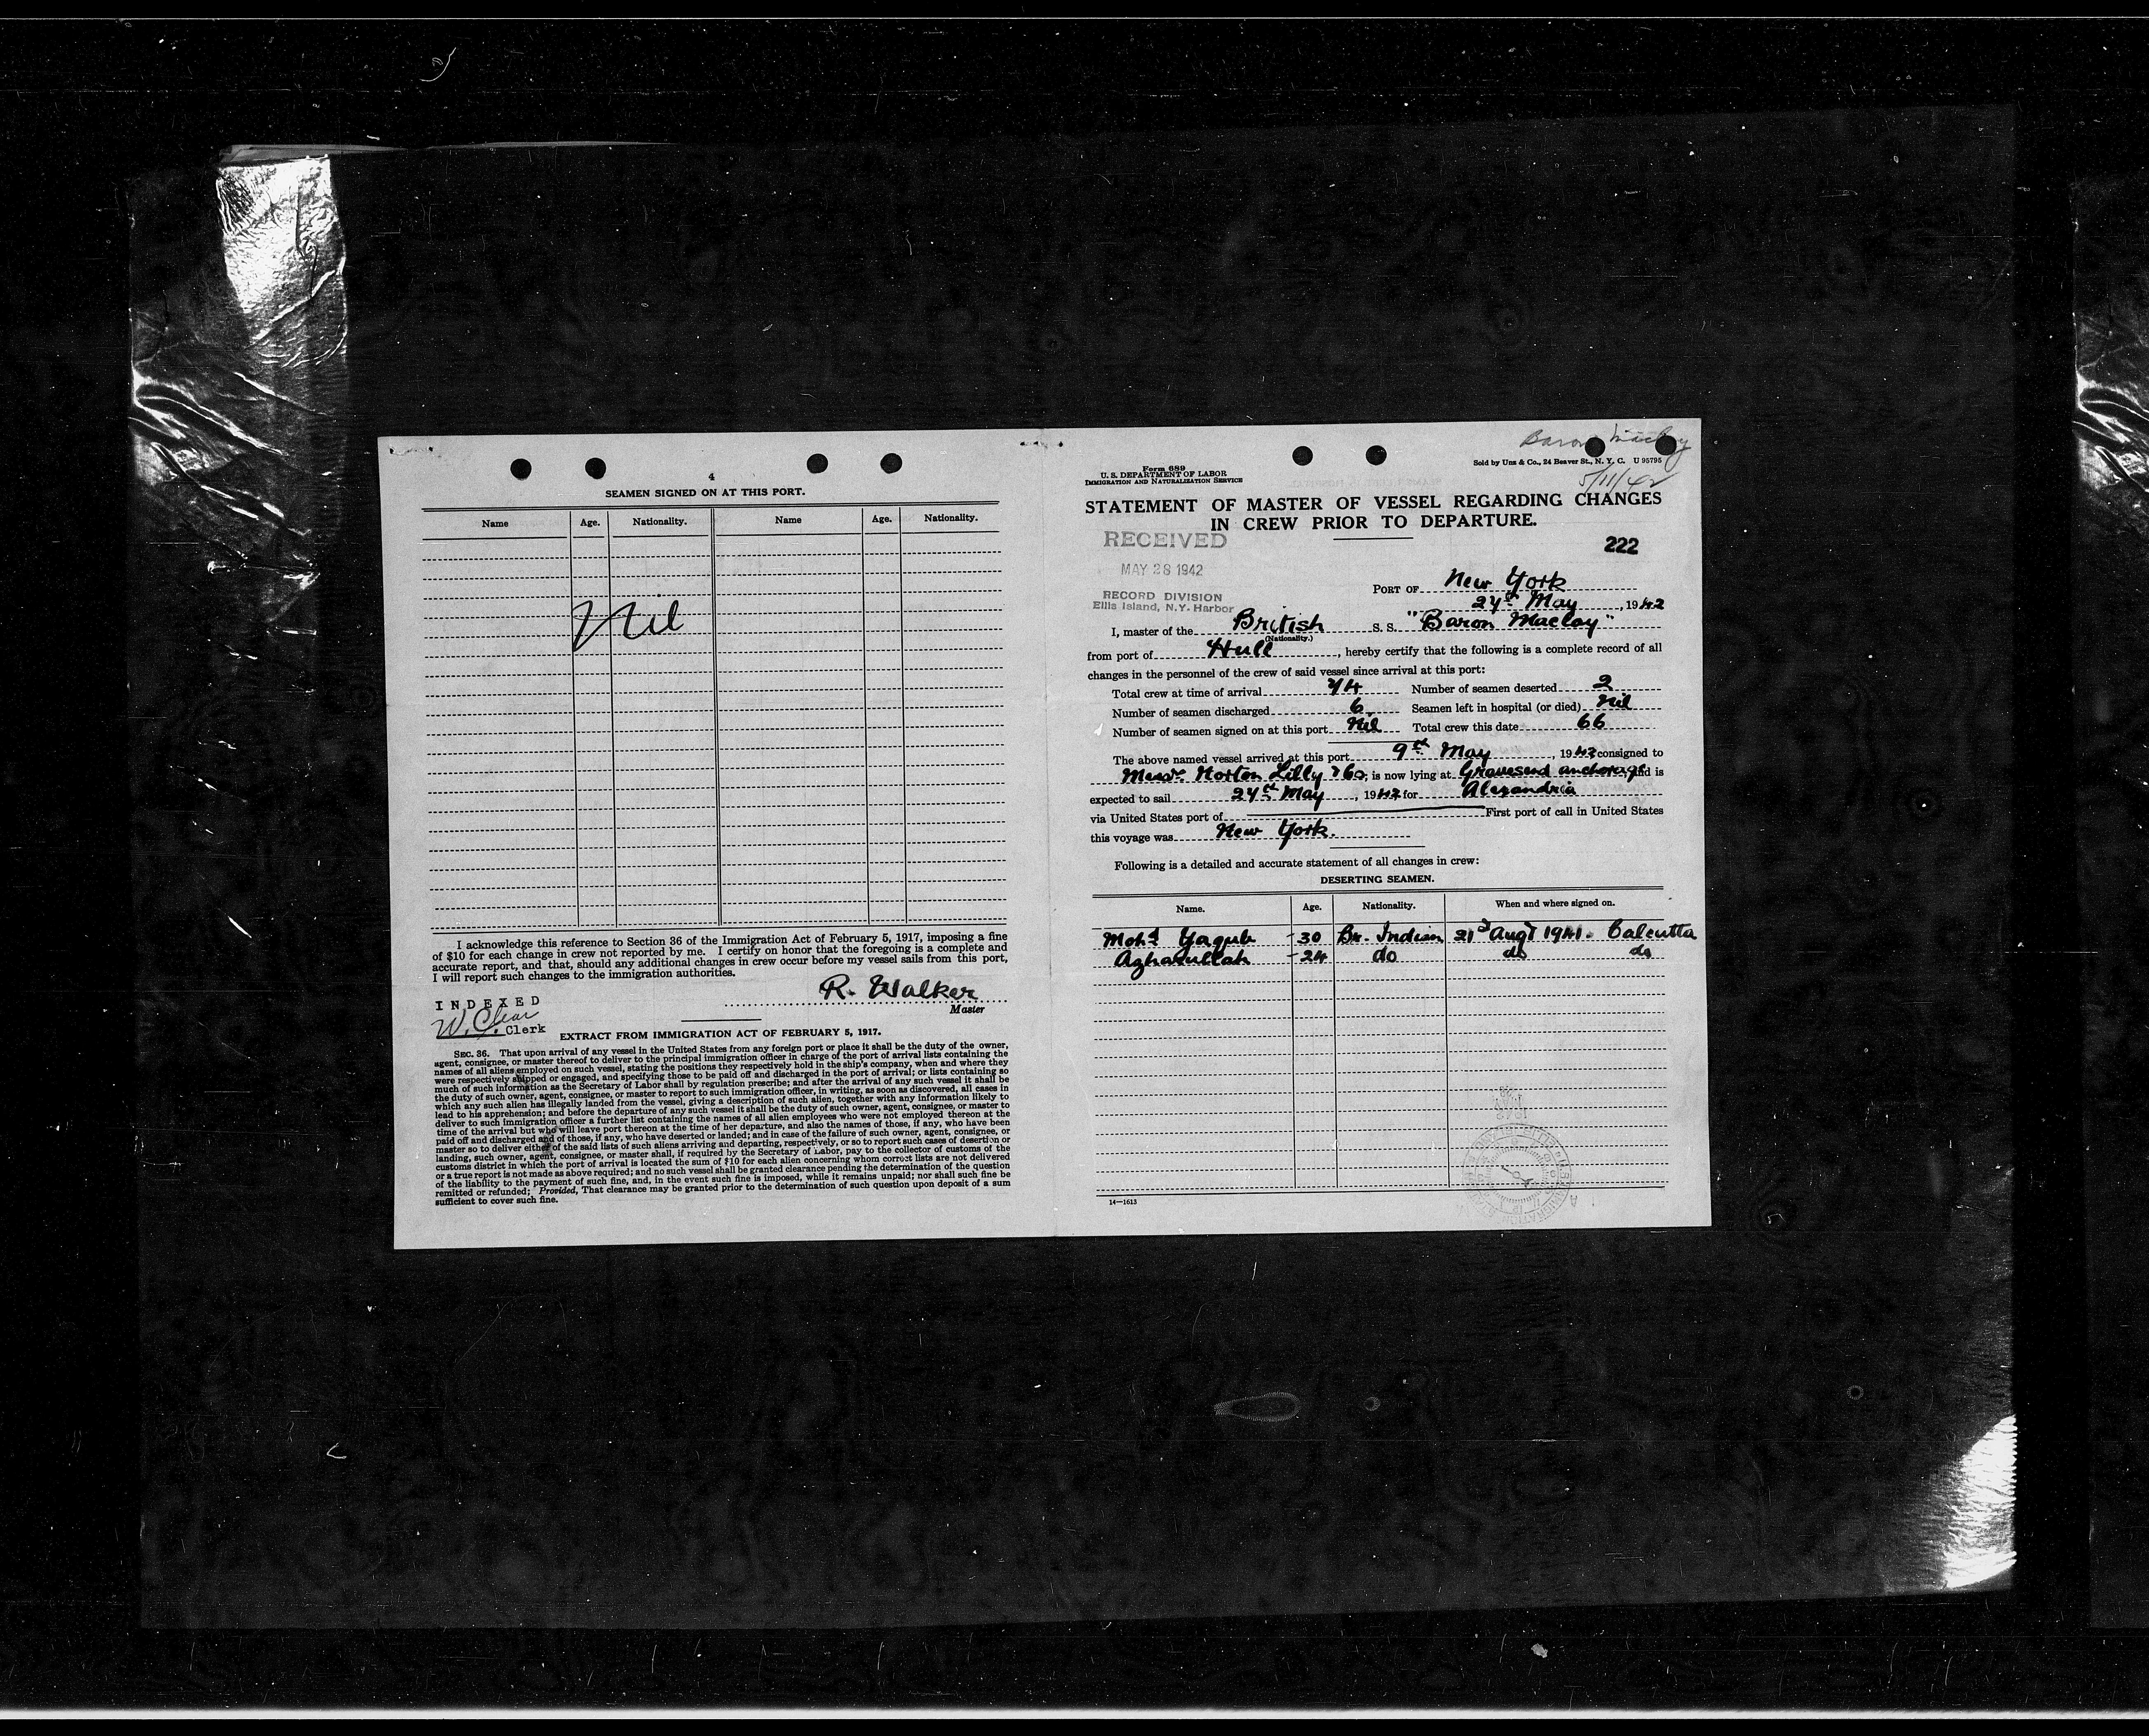 4
SEAMEN SIGNED ON AT THIS PORT.
Name Age. Nationality. Name Age. Nationality.
Nil
I acknowledge this reference to Section 36 of the Immigration Act of February 5, 1917, imposing a fine
of $10 for each change in crew not reported by me. I certify on honor that the foregoing is a complete and
accurate report, and that, should any additional changes in crew occur before my vessel sails from this port,
I will report such changes to the immigration authorities.
R. Walker
Master
INDEXED
W. Clear
Clerk
EXTRACT FROM IMMIGRATION ACT OF FEBRUARY 5, 1917.
SEC. 36. That upon arrival of any vessel in the United States from any foreign port or place it shall be the duty of the owner,
agent, consignee, or master thereof to deliver to the principal immigration officer in charge of the port of arrival lists containing the
names of all aliens employed on such vessel, stating the positions they respectively hold in the ship's company, when and where they
were respectively shipped or engaged, and specifying those to be paid off and discharged in the port of arrival; or lists containing so
much of such information as the Secretary of Labor shall by regulation prescribe; and after the arrival of any such vessel it shall be
the duty of such owner, agent, consignee, or master to report to such immigration officer, in writing, as soon as discovered, all cases in
which any such alien has illegally landed from the vessel, giving a description of such alien, together with any information likely to
lead to his apprehension; and before the departure of any such vessel it shall be the duty of such owner, agent, consignee, or master to
deliver to such immigration officer a further list containing the names of all alien employees who were not employed thereon at the
time of the arrival but who will leave port thereon at the time of her departure, and also the names of those, if any, who have been
paid off and discharged and of those, if any, who have deserted or landed; and in case of the failure of such owner, agent, consignee, or
master so to deliver either of the said lists of such aliens arriving and departing, respectively, or so to report such cases of desertion or
landing, such owner, agent, consignee, or master shall, if required by the Secretary of Labor, pay to the collector of customs of the
customs district in which the port of arrival is located the sum of $10 for each alien concerning whom correct lists are not delivered
or a true report is not made as above required; and no such vessel shall be granted clearance pending the determination of the question
of the liability to the payment of such fine, and, in the event such fine is imposed, while it remains unpaid; nor shall such fine be
remitted or refunded; Provided, That clearance may be granted prior to the determination of such question upon deposit of a sum
sufficient to cover such fine.
Baron Maclay
Form 689
U. S. DEPARTMENT OF LABOR
IMMIGRATION AND NATURALIZATION SERVICE
Sold by Unz & Co., 24 Beaver St., N. Y. C. U 95795
5/11/42
STATEMENT OF MASTER OF VESSEL REGARDING CHANGES
IN CREW PRIOR TO DEPARTURE.
RECEIVED
MAY 28 1942
RECORD DIVISION
Ellis Island, N.Y. Harbor
222
PORT OF New York
24st May, 1942
I, master of the British S. S. "Baron Maclay"
(Nationality.)
from port of Hull, hereby certify that the following is a complete record of all
changes in the personnel of the crew of said vessel since arrival at this port:
Total crew at time of arrival 74 Number of seamen deserted 2
Number of seamen discharged 6 Seamen left in hospital (or died) Nil
Number of seamen signed on at this port Nil Total crew this date 66
The above named vessel arrived at this port 9st May, 1942 consigned to
Messrs Norton Lilly & Co, is now lying at Gravesend anchorage and is
expected to sail 24st May, 1942 for Alexandria
via United States port of First port of call in United States
this voyage was New York.
Following is a detailed and accurate statement of all changes in crew:
DESERTING SEAMEN.
Name. Age. Nationality. When and where signed on.
Mohd Yaqub - 30 Br. Indian 21st Augt 1941. Calcutta
Azharullah - 24 do do do
14—1613